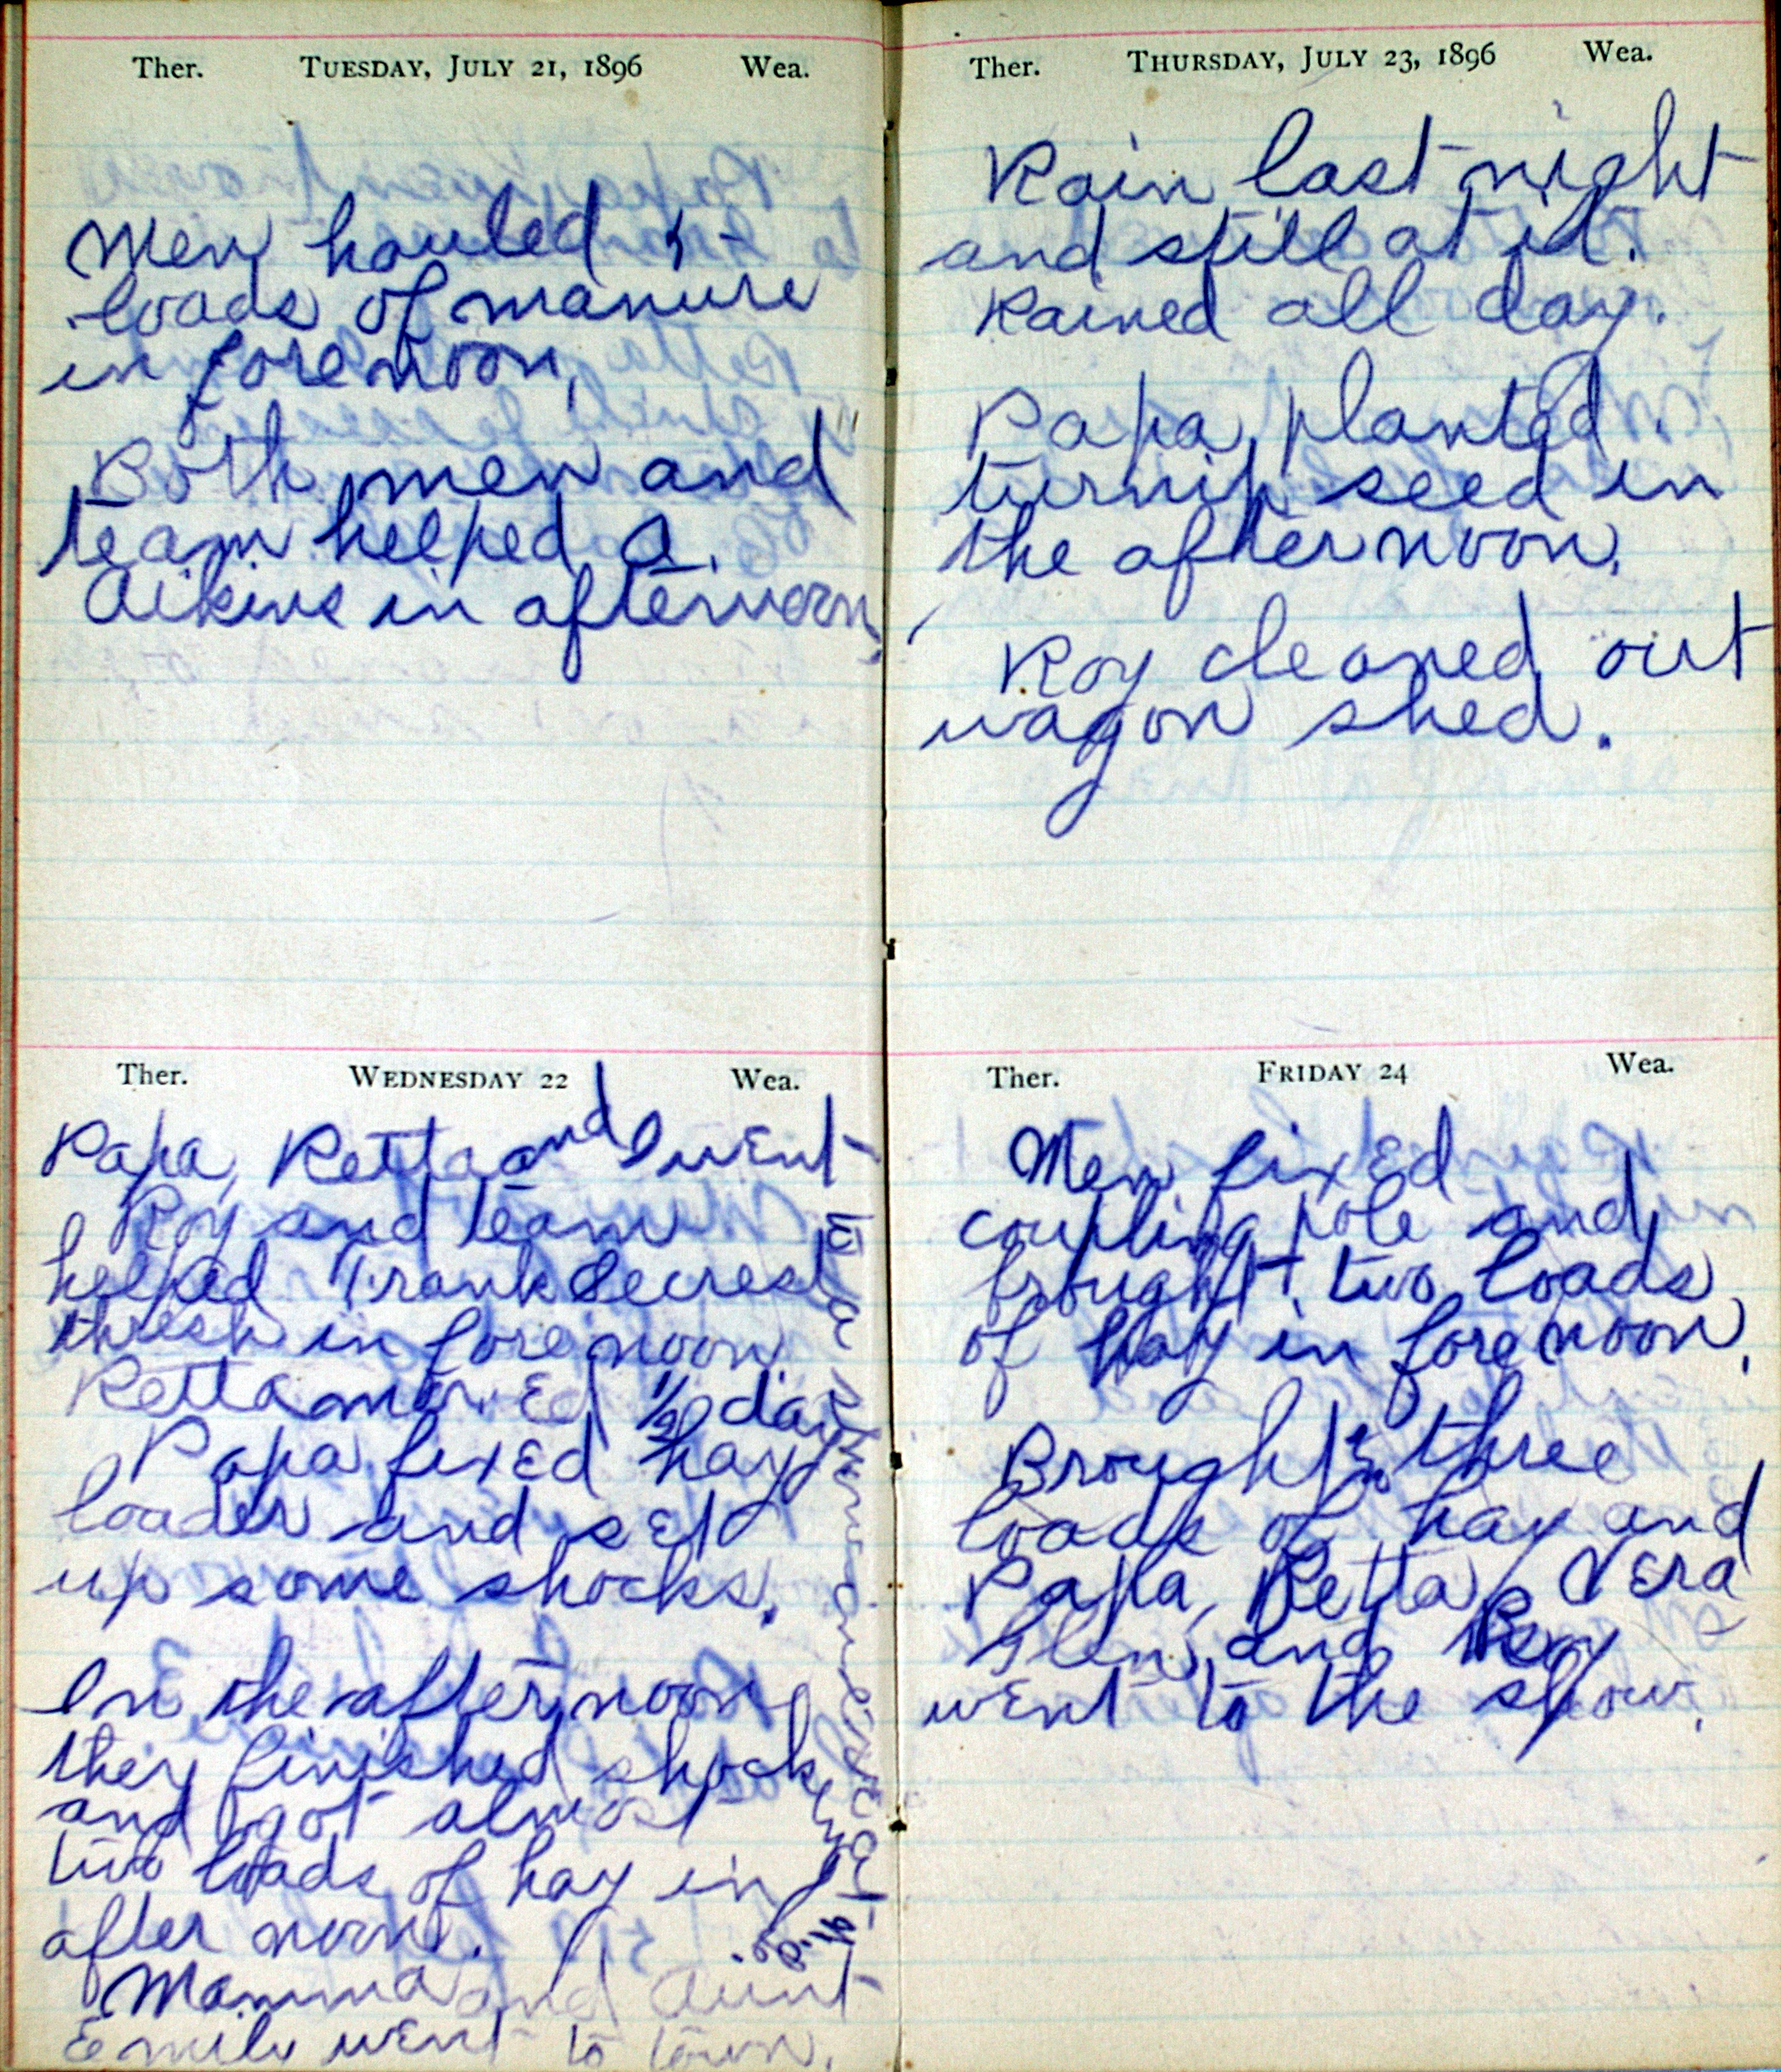 Ther. TUESDAY, JULY 21, 1896 Wea.
Men hauled
loads of manure
in forenoon,
Both men and
team helped a.
Aikins in afternoon,
Ther. WEDNESDAY 22 Wea.
Papa, Retta and I went
Roy and team
helped Frank Secrest
thresh in forenoon
Retta mowed 1/2 day
Papa fixed hay
loader and set
up some shocks.
In the afternoon
they finished shock
and got almost
two loads of hay in
after noon.
Mamma and Aunt
Emily went to town.
Ther. THURSDAY, JULY 23, 1896 Wea.
Rain last night
and still at it.
Rained all day.
Papa planted
turnip seed in
the afternoon.
Roy cleaned out
wagon shed.
Ther. FRIDAY 24 Wea.
Men fixed
coupling pole and
brought two loads
of hay in forenoon,
Brought three
loads of hay and
Papa, Retta, Vera
Glen, and Roy
went to the show.